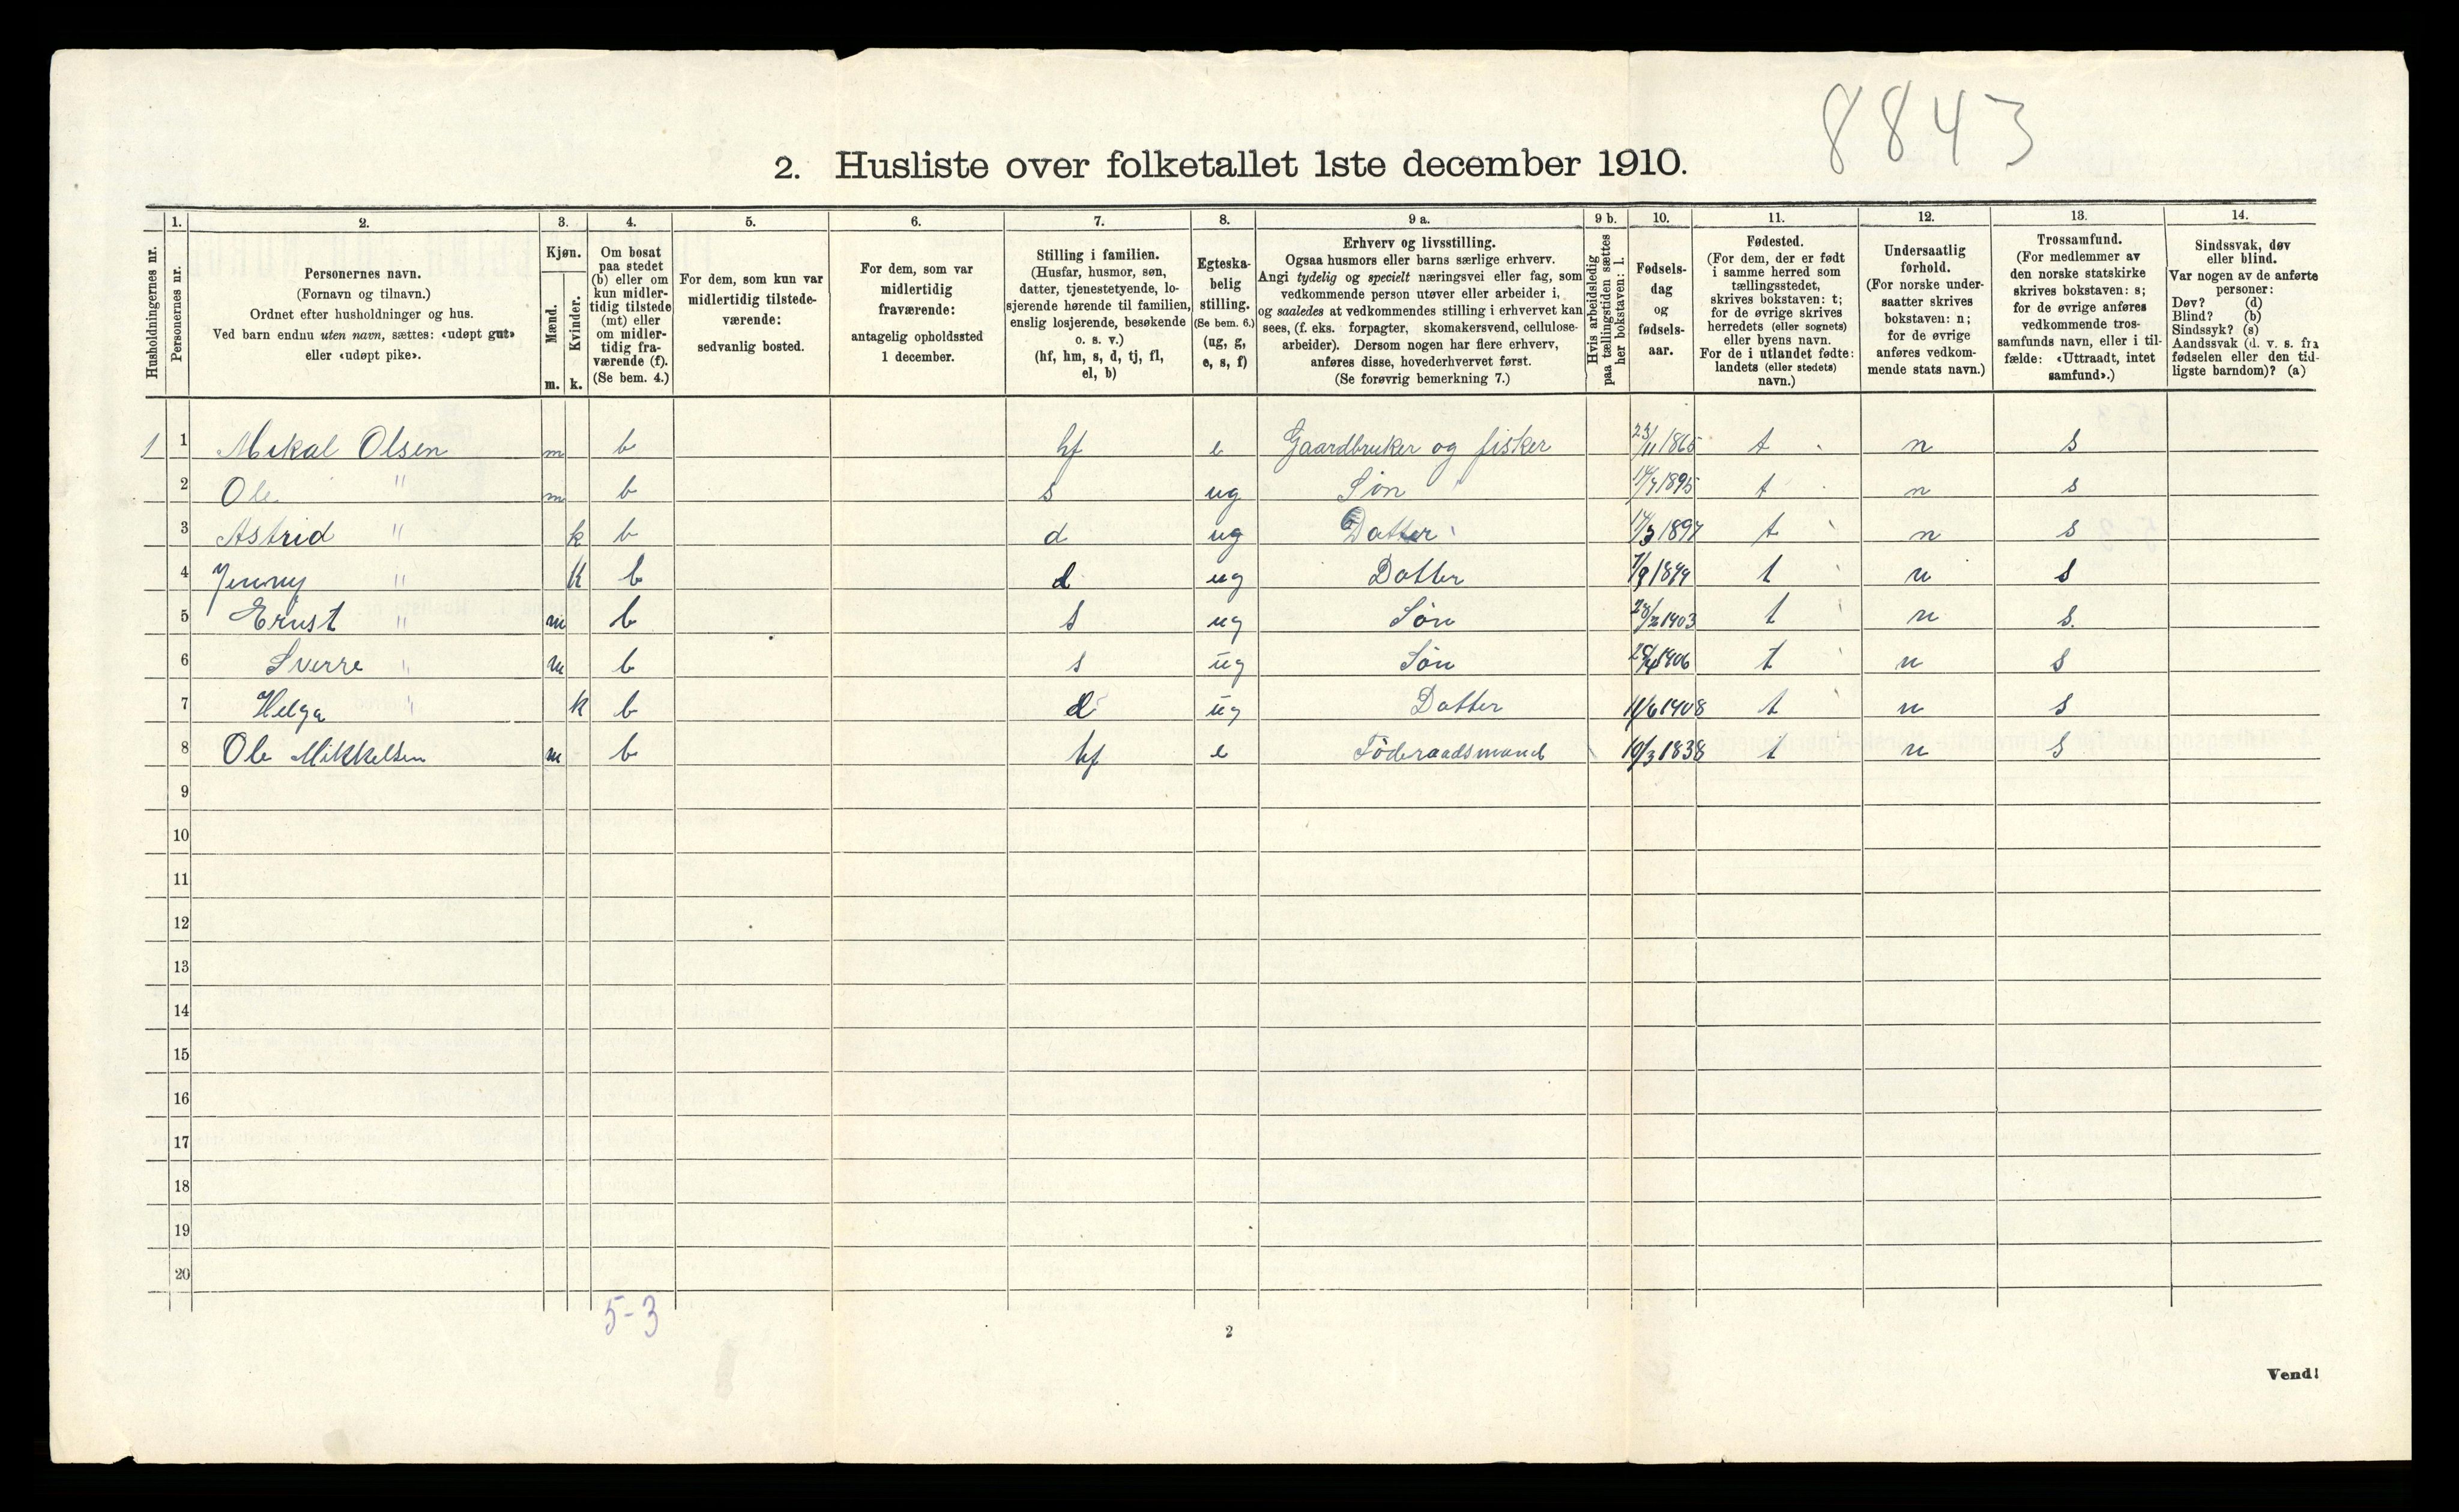 8843
2. Husliste over folketallet 1ste december 1910.
Husholdningernes nr.
1. Personernes nr.
2. Personernes navn.
(Fornavn og tilnavn.)
Ordnet efter husholdninger og hus.
Ved barn endnu uten navn, sættes: «udøpt gut»
eller «udøpt pike».
3. Kjøn.
Mænd. m.
Kvinder. k.
4. Om bosat
paa stedet
(b) eller om
kun midler-
tidig tilstede
(mt) eller
om midler-
tidig fra-
værende (f).
(Se bem. 4.)
5. For dem, som kun var
midlertidig tilstede-
værende:
sedvanlig bosted.
6. For dem, som var
midlertidig
fraværende:
antagelig opholdssted
1 december.
7. Stilling i familien.
(Husfar, husmor, søn,
datter, tjenestetyende, lo-
sjerende hørende til familien,
enslig losjerende, besøkende
o. s. v.)
(hf, hm, s, d, tj, fl,
el, b)
8. Egteska-
belig
stilling.
(Se bem. 6.)
(ug, g,
e, s, f)
9 a. Erhverv og livsstilling.
Ogsaa husmors eller barns særlige erhverv.
Angi tydelig og specielt næringsvei eller fag, som
vedkommende person utøver eller arbeider i,
og saaledes at vedkommendes stilling i erhvervet kan
sees, (f. eks. forpagter, skomakersvend, cellulose-
arbeider). Dersom nogen har flere erhverv,
anføres disse, hovederhvervet først.
(Se forøvrig bemerkning 7.)
9 b. Hvis arbeidsledig
paa tællingstiden sættes
her bokstaven: l.
10. Fødsels-
dag
og
fødsels-
aar.
11. Fødested.
(For dem, der er født
i samme herred som
tællingsstedet,
skrives bokstaven: t;
for de øvrige skrives
herredets (eller sognets)
eller byens navn.
For de i utlandet fødte:
landets (eller stedets)
navn.)
12. Undersaatlig
forhold.
(For norske under-
saatter skrives
bokstaven: n;
for de øvrige
anføres vedkom-
mende stats navn.)
13. Trossamfund.
(For medlemmer av
den norske statskirke
skrives bokstaven: s;
for de øvrige anføres
vedkommende tros-
samfunds navn, eller i til-
fælde: «Uttraadt, intet
samfund».)
14. Sindssvak, døv
eller blind.
Var nogen av de anførte
personer:
Døv? (d)
Blind? (b)
Sindssyk? (s)
Aandssvak (d. v. s. fra
fødselen eller den tid-
ligste barndom)? (a)
1 1 Mikal Olsen m b hf e Gaardbruker og fisker 23/11 1865 t n s
2 Ole " m b s ug Søn 1895 t n s
3 Astrid " k b d ug Datter 1897 t n s
4 Jenny " k b d ug Datter 7/9 1899 t n s
5 Ernst " m b s ug Søn 1903 t n s.
6 Sverre " m b s ug Søn 1906 t n s
7 Helga " k b d ug Datter 11/6 1908 t n s
8 Ole Mikkelsen m b hf e Föderaadsmand 10/3 1838 t n s
9
10
11
12
13
14
15
16
17
18
19
20
5-3
2
Vend!